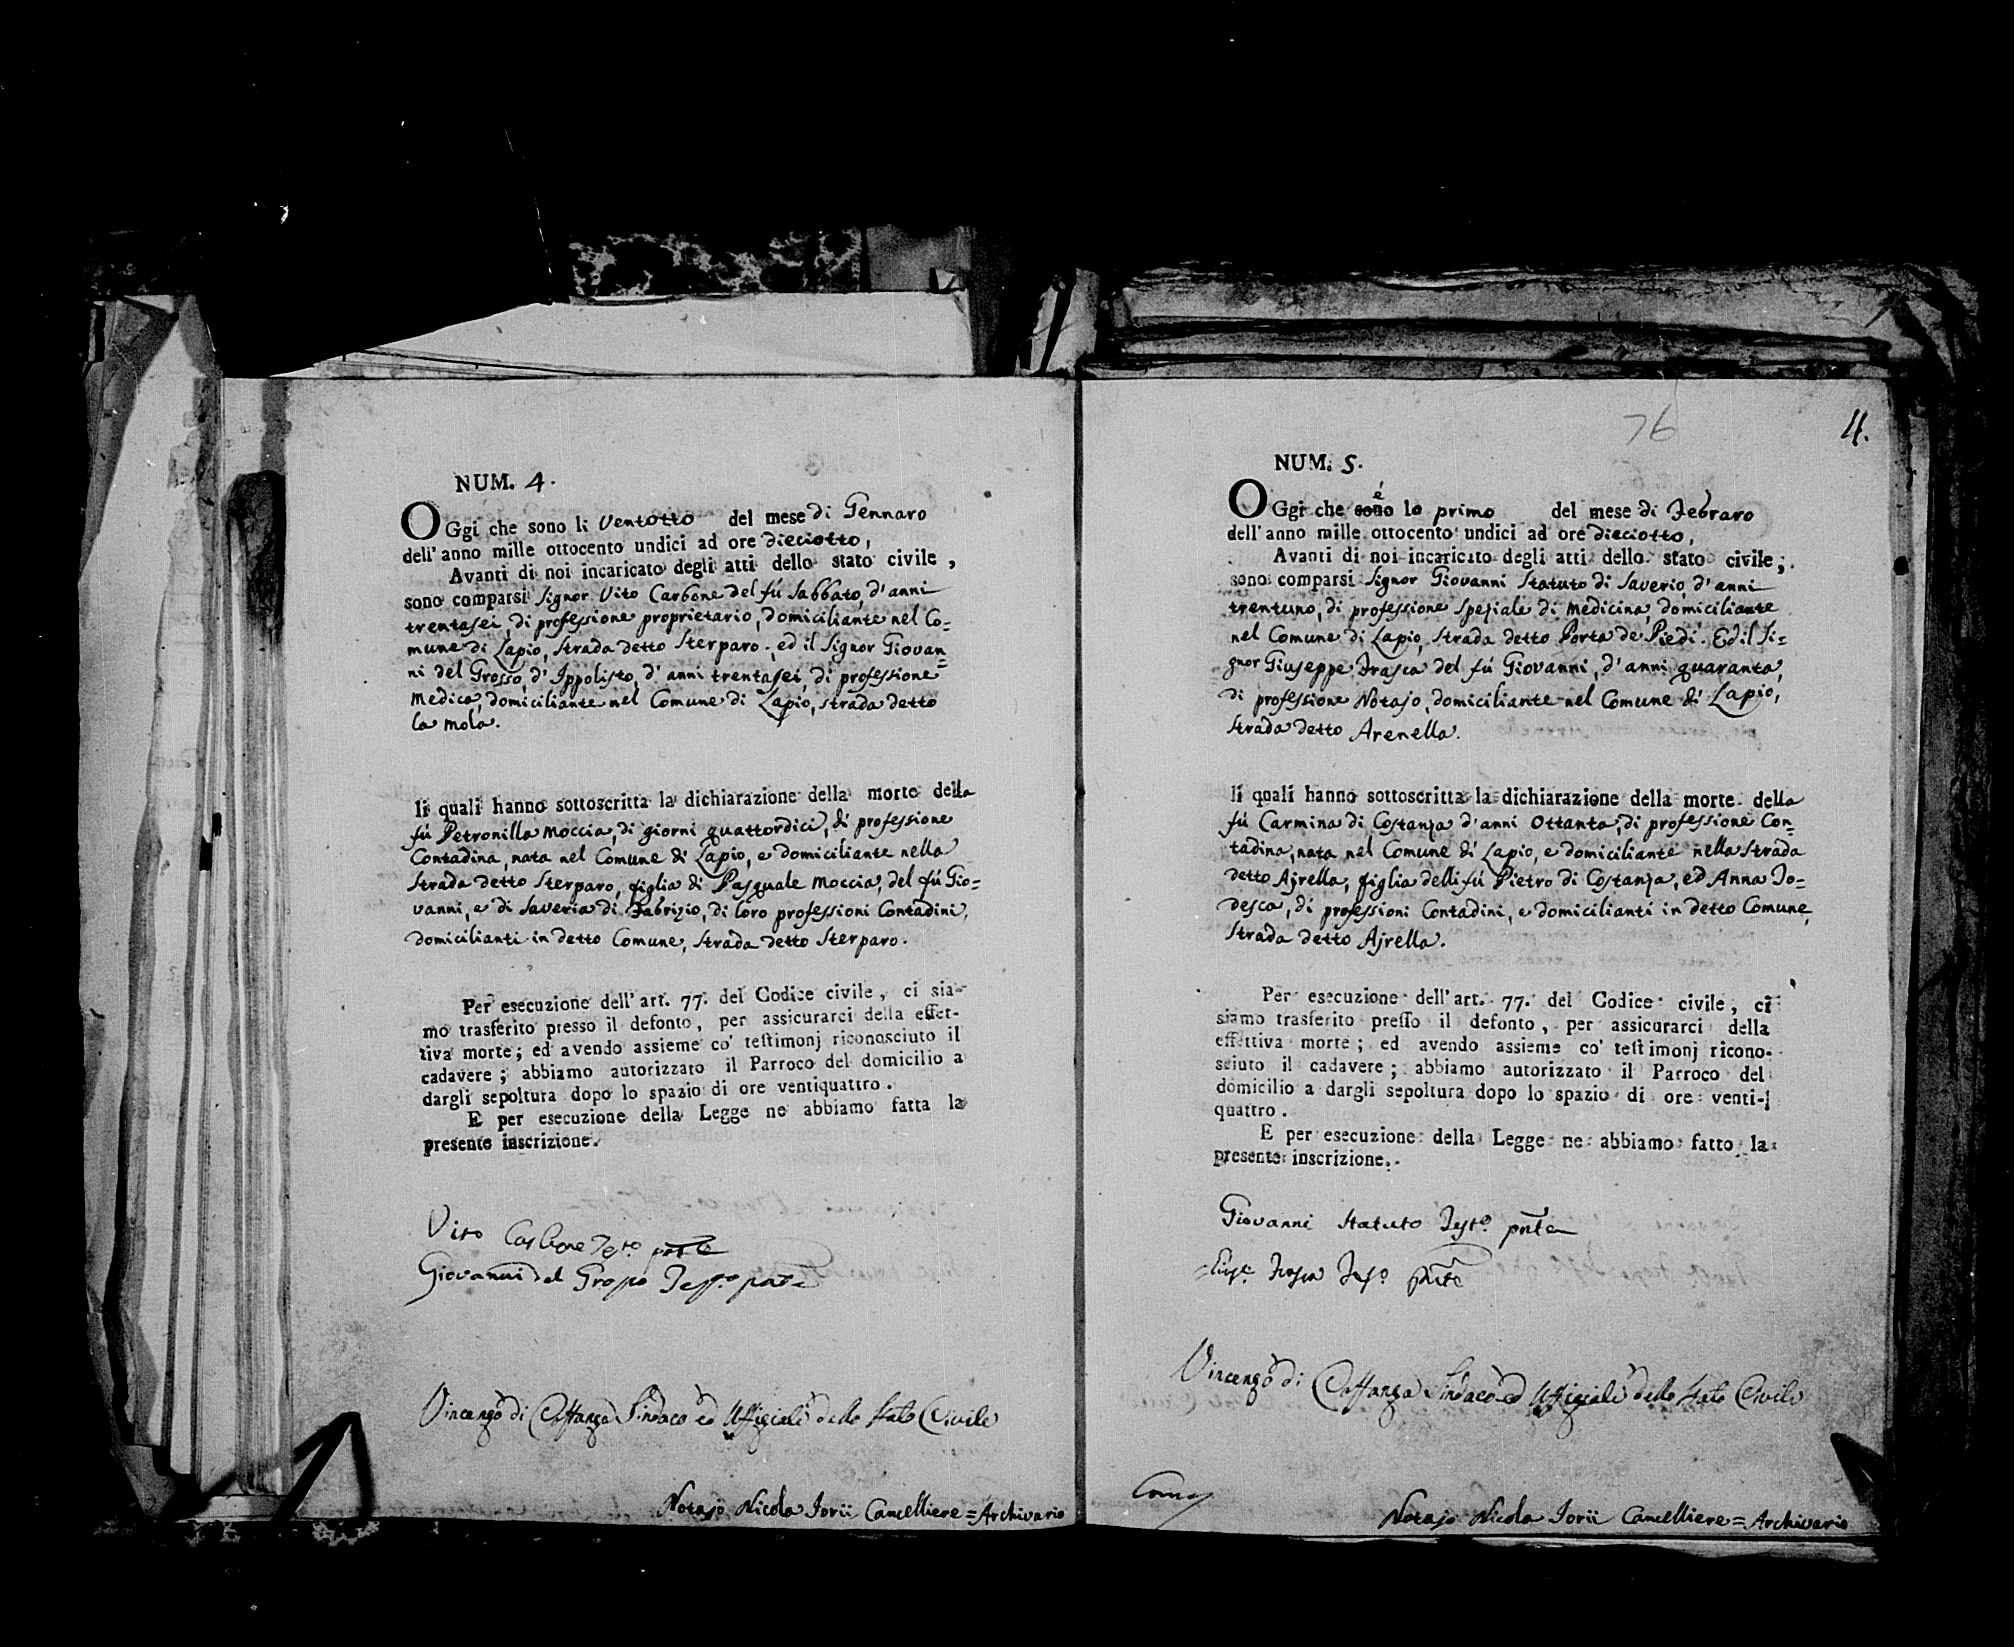 NUM. 4.
OGgi che sono li Ventotto del mese di Gennaro
dell' anno mille ottocento undici ad ore dieciotto,
Avanti di noi incaricato degli atti dello stato civile,
sono comparsi Signor Vito Carbone del fú Sabbato, d' anni
trentasei, di professione proprietario, domiciliante nel Co=
mune di Lapio, Strada detto Sterparo, ed il Signor Giovan=
ni del Grosso, d' Ippolisto, d' anni trentasei, di professione
Medico, domiciliante nel Comune di Lapio, strada detto
la mola.
li quali hanno sottoscritta la dichiarazione della morte della
fú Petronilla Moccia, di giorni quattordici, di professione
Contadina, nata nel Comune di Lapio, e domiciliante nella
Strada detto Sterparo, figlia di Pasquale Moccia, del fú Gio=
vanni, e di Saveria di Fabrizio, di loro professioni Contadini,
domicilianti in detto Comune, strada detto Sterparo.
Per esecuzione dell' art. 77. del Codice civile, ci sia-
mo trasferito presso il defonto, per assicurarci della effet-
tiva morte; ed avendo assieme co' testimonj riconosciuto il
cadavere; abbiamo autorizzato il Parroco del domicilio a
dargli sepoltura dopo lo spazio di ore ventiquattro.
E per esecuzione della Legge ne abbiamo fatta la
presente inscrizione.
Vito Carbone Testo. pnte
Giovanni del Grosso Testo. pnte
Vincenzo di Costanza Sindaco ed Uffiziale dello Stato Civile
Notajo Nicola Iorii Cancelliere = Archivario
76
4.
NUM. 5.
é
OGgi che sono lo primo del mese di Febraro
dell' anno mille ottocento undici ad ore dieciotto,
Avanti di noi incaricato degli atti dello stato civile;
sono comparsi Signor Giovanni Statuto di Saverio, d' anni
trentuno, di professione Speziale di Medicina, domiciliante
nel Comune di Lapio, strada detto Porta de Piedi. Ed il Si=
gnor Giuseppe Frasca del fú Giovanni, d' anni quaranta,
di professione Notajo, domiciliante nel Comune di Lapio,
Strada detto Arenella.
li quali hanno sottoscritta la dichiarazione della morte della
fú Carmina di Costanza d' anni Ottanta, di professione Con=
tadina, nata nel Comune di Lapio, e domiciliante nella Strada
detto Ajrella, figlia delli fú Pietro di Costanza, ed Anna To=
desca, di professioni Contadini, e domicilianti in detto Comune,
Strada detto Ajrella.
Per esecuzione dell' art. 77. del Codice civile, ci
siamo trasferito presso il defonto, per assicurarci della
effettiva morte; ed avendo assieme co' testimonj ricono-
sciuto il cadavere; abbiamo autorizzato il Parroco del
domicilio a dargli sepoltura dopo lo spazio di ore venti-
quattro.
E per esecuzione della Legge ne abbiamo fatto la
presente inscrizione.
Giovanni Statuto Testo. pnte
Giuse. Frasca Testo. pnte
Vincenzo di Costanza Sindaco ed Uffiziale dello Stato Civile
Notajo Nicola Iorii Cancelliere = Archivario